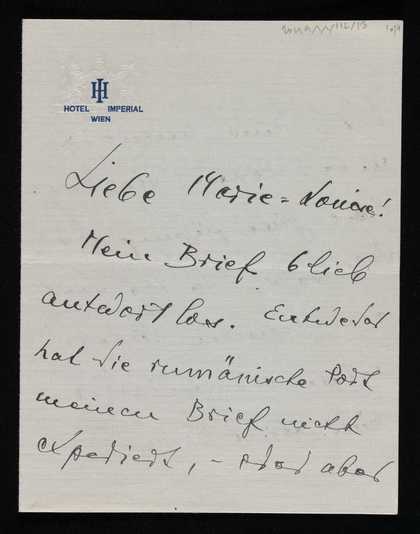 HOTEL IMPERIAL
WIEN
Liebe Marie=Louise!
Mein Brief blieb
antwortlos. Entweder
hat die rumänische Post
meinen Brief nicht
expediert, – oder aber